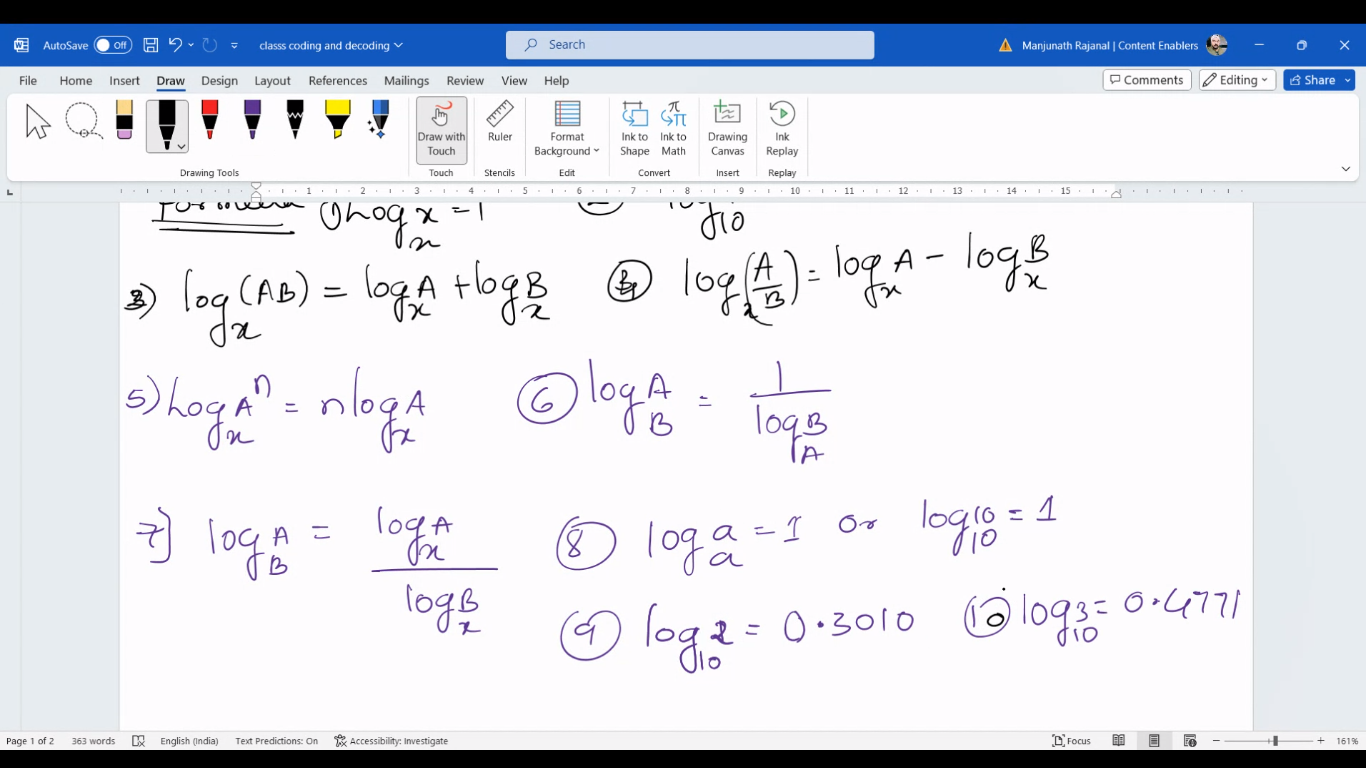 AutoSave Off classs coding and decoding Search Manjunath Rajanal | Content Enablers
File Home Insert Draw Design Layout References Mailings Review View Help Comments Editing Share
Draw with Touch Ruler Format Background Ink to Shape Ink to Math Drawing Canvas Ink Replay
Drawing Tools Touch Stencils Edit Convert Insert Replay
1 2 3 4 5 6 7 8 9 10 11 12 13 14 15
Formula 1) Log_x x = 1 log_10
3) log_x (AB) = log_x A + log_x B 4 log_x (A/B) = log_x A - log_x B
5) Log_x A^n = n log_x A 6 log_B A = 1/log_A B
7) log_B A = log_x A / log_x B 8 log_a a = 1 or log_10 10 = 1
9 log_10 2 = 0.3010 10 log_10 3 = 0.4771
Page 1 of 2 363 words English (India) Text Predictions: On Accessibility: Investigate Focus 161%